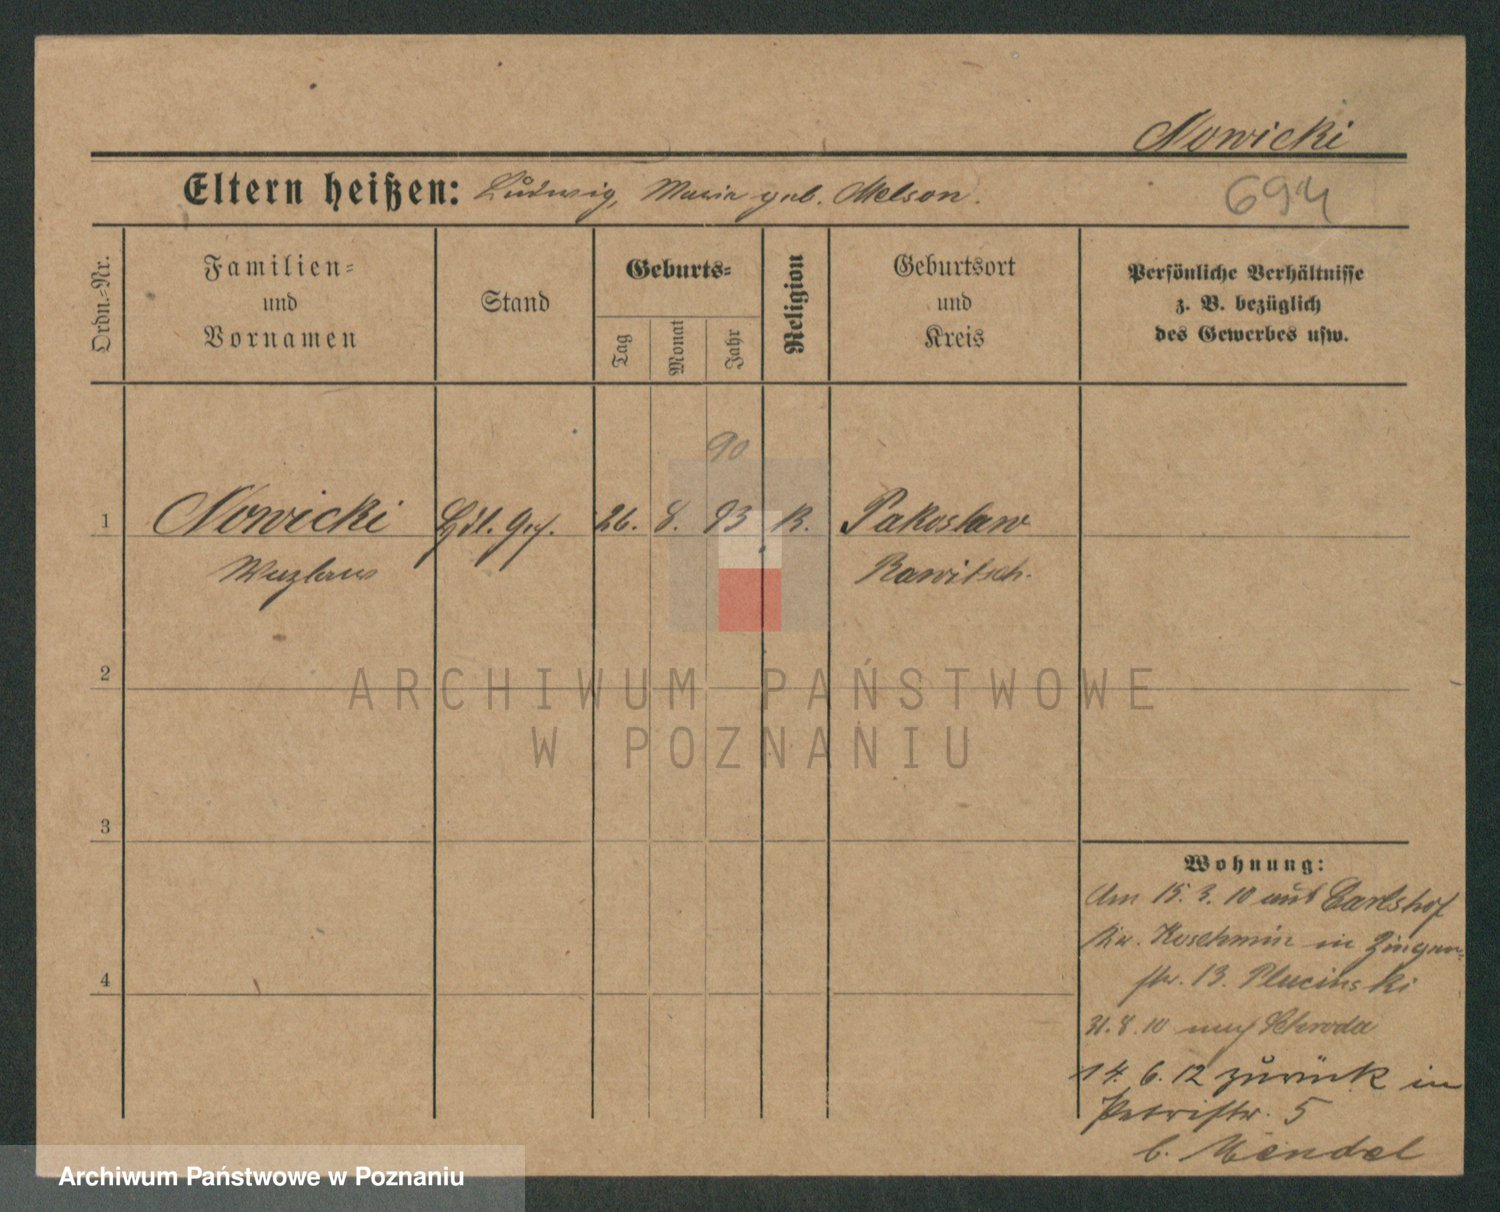 Nowicki
Eltern heißen: Ludwig, Maria geb. Melson.
694
Ordn.-Nr.
Familien-
und
Vornamen
Stand
Geburts-
Tag
Monat
Jahr
Religion
Geburtsort
und
Kreis
Persönliche Verhältnisse
z. B. bezüglich
des Gewerbes usw.
90
1 Nowicki 26. 8. 93 K. Pakoslaw
Wuzlaus Rawitsch.
2
ARCHIWUM PAŃSTWOWE
W POZNANIU
3
Wohnung:
Am 15. 3. 10 aus Carlshof
Kr. Koschmin in
4
str. 13. Plucinski
31. 8. 10 nach Schroda
14. 6. 12 zurück in
Petristr. 5
b. Mendel
Archiwum Państwowe w Poznaniu